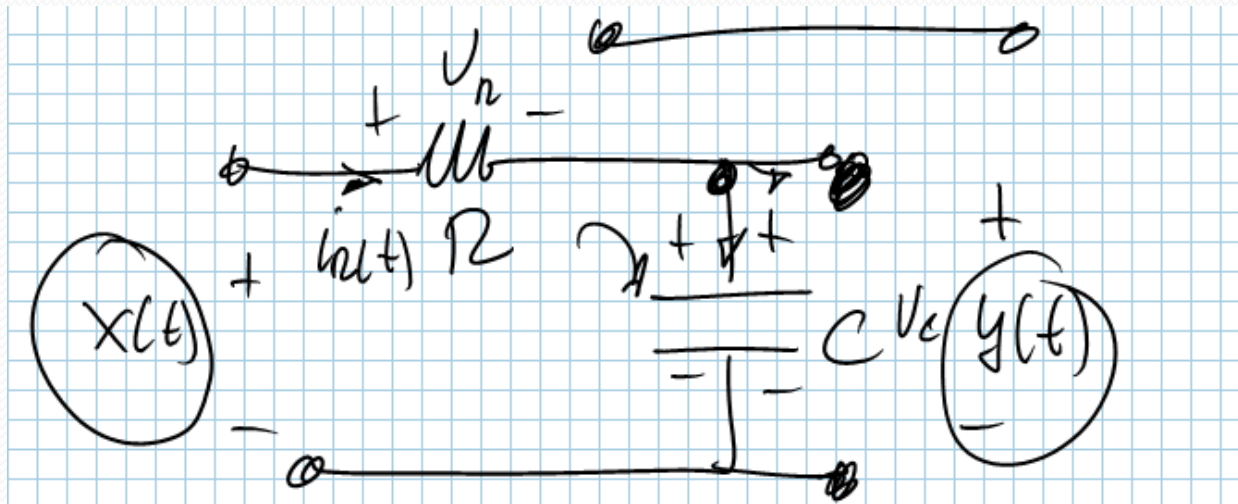 + V_R -
i_R(t) R + +
+ x(t) - C V_c + y(t) -
- -